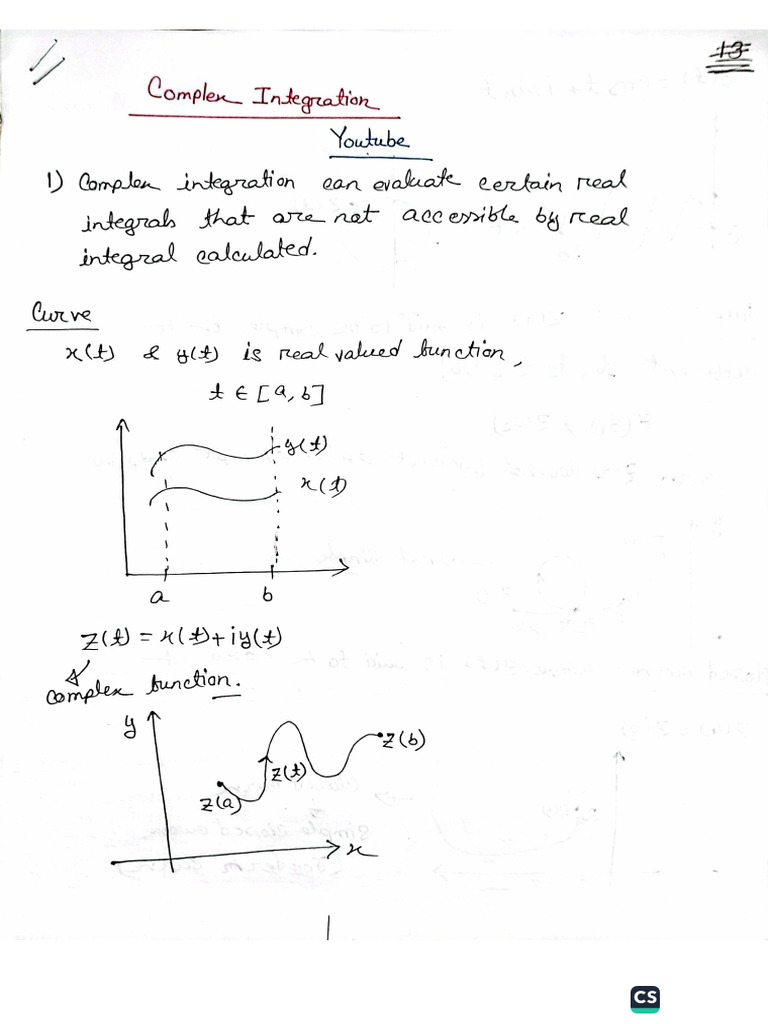 13
Complex Integration
Youtube
1) Complex integration can evaluate certain real
integrals that are not accessible by real
integral calculated.
Curve
x(t) & y(t) is real valued function,
t ∈ [a, b]
y(t)
x(t)
a b
z(t) = x(t) + iy(t)
complex function.
y
z(b)
z(t)
z(a)
x
1
CS